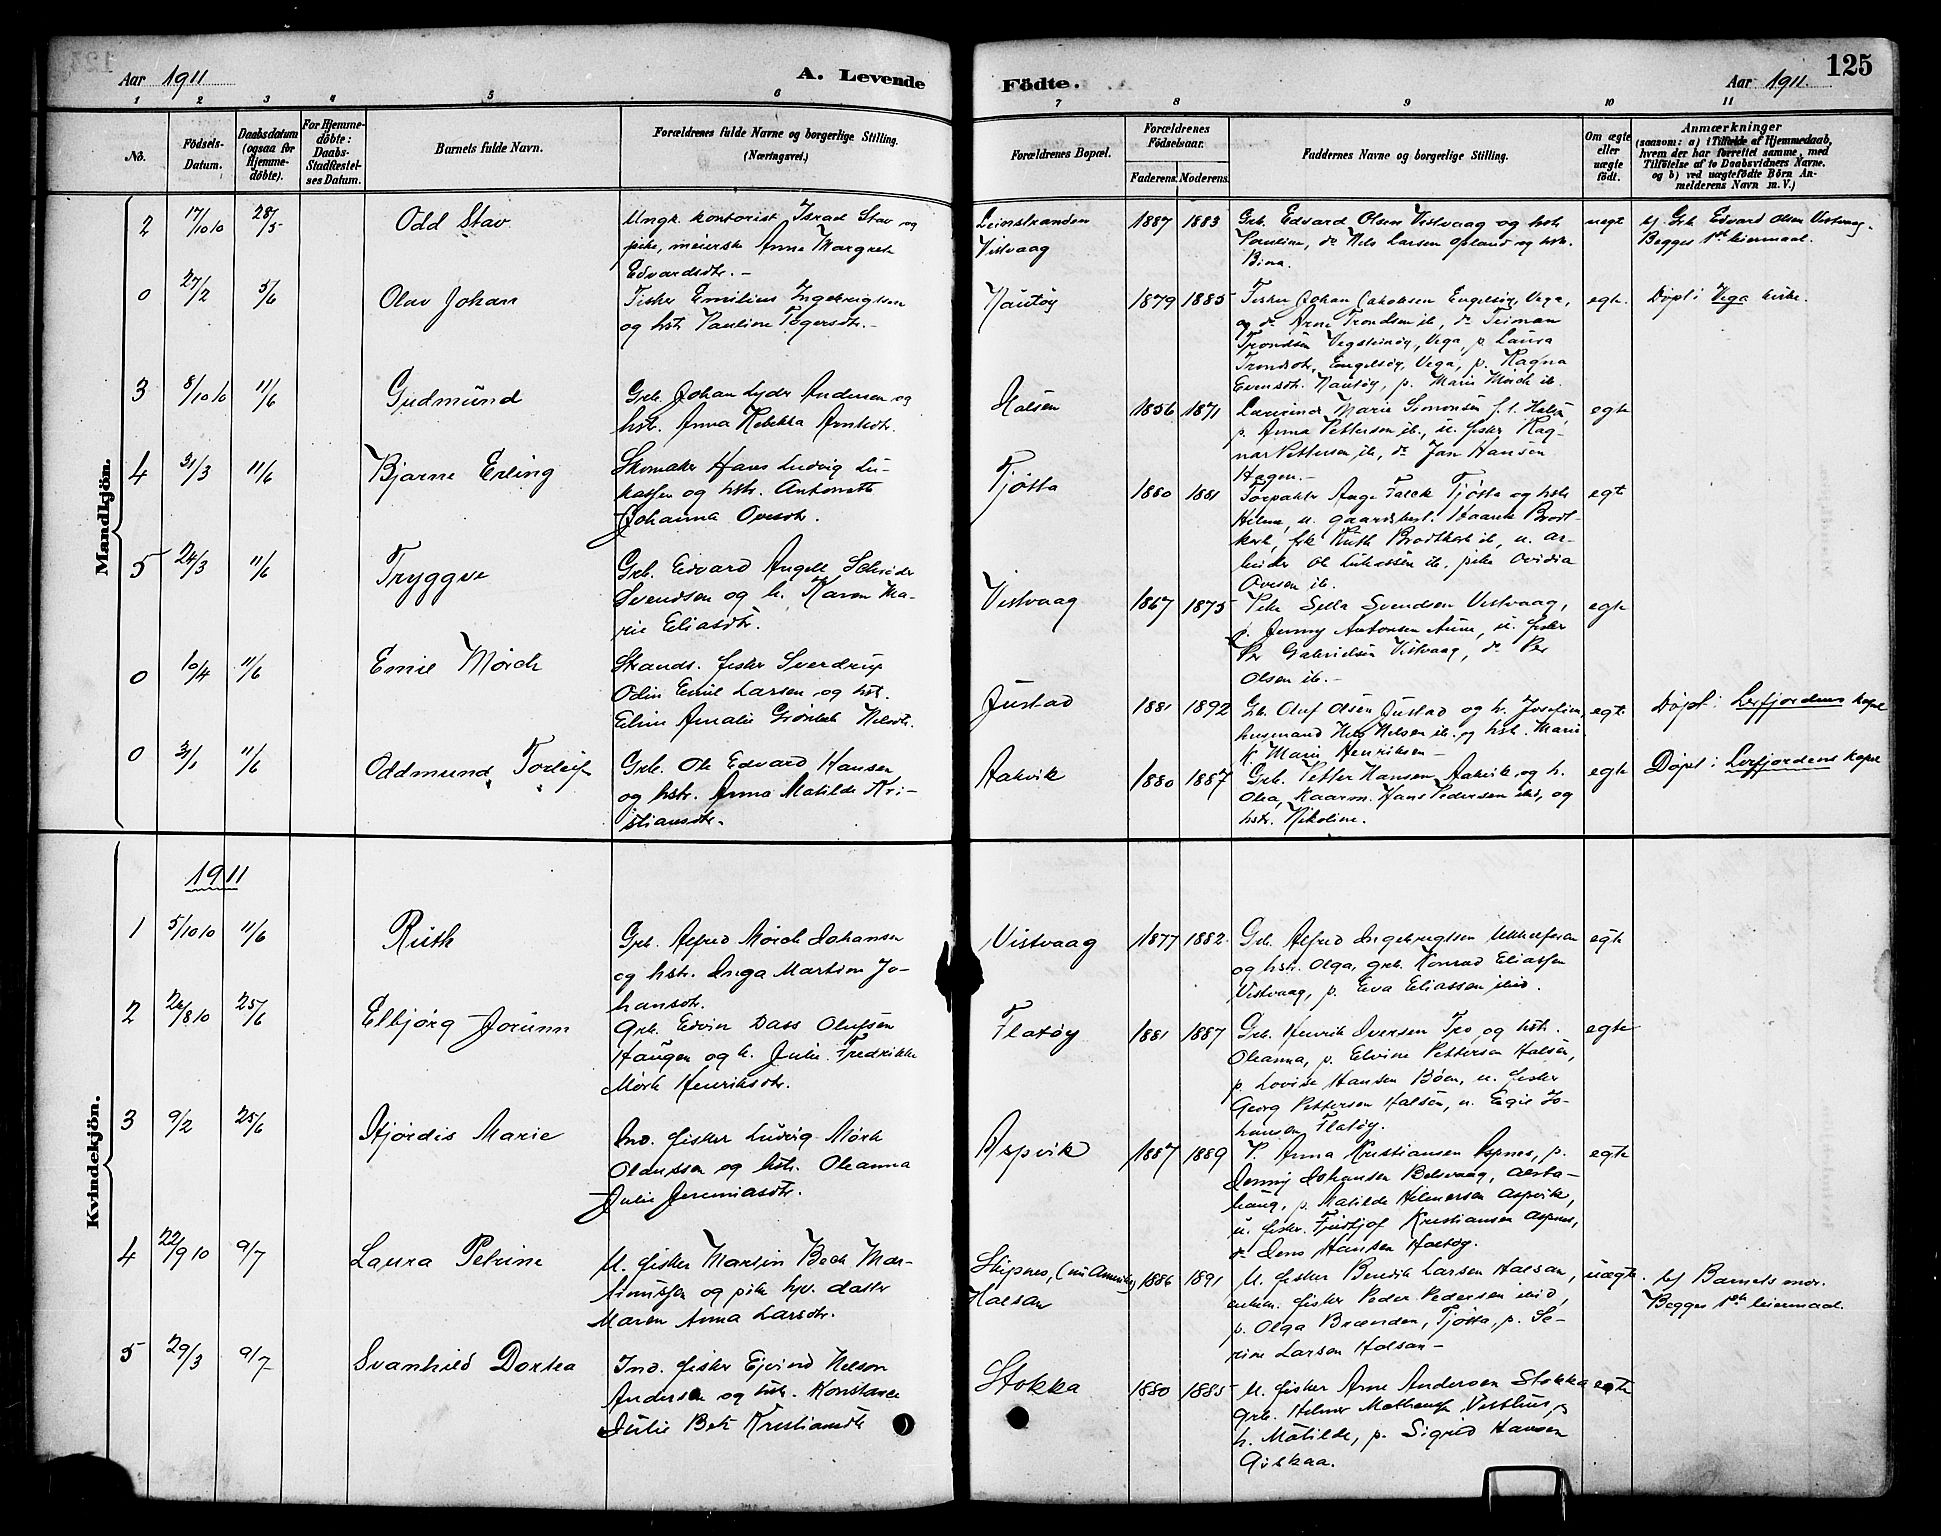 Aar 1911
A. Levende
Födte.
Aar 1911.
125
1 2 3 4 5 6 7 8 9 10 11
No.
Födsels-Datum.
Daabsdatum (ogsaa for Hjemme-döbte).
For Hjemme-döbte: Daabs-Stadfæstel-ses Datum.
Barnets fulde Navn.
Forældrenes fulde Navne og borgerlige Stilling.
(Næringsvei.)
Forældrenes Bopæl.
Forældrenes Födselsaar.
Faderens. Moderens.
Faddernes Navne og borgerlige Stilling.
Om ægte eller uægte födt.
Anmærkninger
(saasom: a) i Tilfælde af Hjemmedaab,
hvem der har forrettet samme, med
Tilföielse af to Daabsvidners Navne,
og b) ved uægtefödte Börn An-
melderens Navn m. V.)
Mandkjön.
2 17/10 10 28/5 Odd Stav
Ungk. kontorist Israel Stav og
pike, meierske Anna Margrete
Edvardsdtr. –
Leinstranden
Vistvaag
1887 1883
Grb. Edvard Olsen Vistvaag og hstr
Pauline, do Nils Larsen Opland og hstr.
Bina.
uegt
b/ Grb. Edvard Olsen Vistvaag.
Begges 1st leiermaal.
0 27/2 5/6 Olav Johan
Fisker Emilius Ingebrigtsen
og hstr Pauline Tøgersdtr. –
Hautøy
1879 1885
Fisker Johan Jakobsen Engelsøy, Vega,
og do Arne Trondsen ib, do Teiman
Trondsen Vegsteinøy, Vega, p. Laura
Trondsdtr, Engelsøy, Vega, p. Ragna
Evensdtr. Hautøy, p. Marie Mørch ib.
egte.
Døpt i Vega kirke.
3 8/10 10 11/6 Gudmund
Grb. Johan Lyder Andersen og
hstr. Anna Rebekka Arntsdtr.
Halsen
1856 1871
Marie Simonsen f. t. Halsen,
p. Anna Pettersen ib., u. fisker Rag-
nar Pettersen ib, do Jan Hansen
Hagen. –
egte
4 31/3 11/6 Bjarne Erling
Skomaker Hans Ludvig Lu-
kassen og hstr. Antonette
Johanna Ovesdtr.
Tjøtta
1880 1881
Forpakter Aage Falck Tjøtta og hstr
Hilma, u. gaardsbest. Haarek Brodt-
korb, frk Ruth Brodtkorb ib, u. ar-
beider Ole Lukassen ib, pike Ovidia
Ovesen ib.
egte
5 24/3 11/6 Tryggve
Grb. Edvard Angell Schrøder
Svendsen og h. Karen Ma-
rie Eliasdtr.
Vistvaag
1867 1875
Pike Sella Svendsen Vistvaag,
p. Jenny Antonsen Aune, u. fisker
Per Gabrielsen Vistvaag, do Per
Olsen ib. –
egte
0 10/4 11/6 Emil Mørch
Strands. fisker Sverdrup
Odin Emil Larsen og hstr.
Eline Amalie Grønbek Nilsdtr.
Justad
1881 1892
Grb. Oluf Olsen Justad og h. Josefine,
husmand Nils Nilsen ib. og hstr. Marie
k. Marie Henriksen –
egte
Døpt i Leirfjordens kapel
0 3/1 11/6 Oddmund Torleif
Grb. Ole Edvard Hansen
og hstr. Anna Matilde Kri-
stiansdtr.
Aakvik
1880 1887
Grb. Petter Hansen Aakvik og h.
Olea, kaarm. Hans Pedersen ibid, og
hstr. Nikoline.
egte
Døpt i Leirfjordens kapel
Kvindekjön.
1911
1 5/10 10 11/6 Ruth
Grb. Alfred Mörch Johansen
og hstr. Inga Martine Jo-
hansdtr.
Vistvaag
1877 1882
Grb. Alfred Ingebrigtsen
og hstr. Olga, grb. Konrad Eliassen
Vistvaag, p. Eva Eliassen ibid.
egte
2 26/8 10 25/6 Elbjörg Jorunn
Grb. Edvin Dass Olufsen
Haugen og h. Julie Fredrikke
Mörk Henriksdtr.
Flatøy
1881 1887
Grb. Henrik Iversen Tro og hstr.
Oleanna, p. Elvine Pettersen Halsen,
p. Lovise Hansen Bøen, u. fisker
Georg Pettersen Halsen, u. Egil Jo-
hansen Flatøy.
egte
3 9/2 25/6 Hjørdis Marie
Ind. fisker Ludvig Mörk
Olaussen og hstr. Oleanna
Julie Jeremiasdtr.
Aspvik
1887 1889
P. Anna Kristiansen Aspnes, p.
Jenny Johansen Belsvaag, Alsta-
haug, p. Matilde Helmersen Aspvik,
u. fisker Fridtjof Kristiansen Aspnes,
do Jens Hansen Hartøy.
egte
4 22/9 10 9/7 Laura Petrine
U. fisker Martin Bech Mar-
tinussen og pike hjv. datter
Maren Anna Larsdtr.
Skipnes, (nu Amerika)
Halsan
1886 1891
U. fisker Bendik Larsen Halsan,
enkem. fisker Peder Pedersen ibid,
p. Olga Brænden, Tjøtta, p. Se-
rine Larsen Halsan –
uægte.
b/ Barnets mor.
Begges 1ste leiermaal.
5 29/3 9/7 Svanhild Dortea
Ind. fisker Ejvind Nelson
Andersen og hstr. Konstance
Julie Bek Kristiansdtr
Stokka
1880 1885
U. fisker Arne Andersen Stokka
grb. Helmer Mathensen Vesthus, og
h. Matilde, p. Sigrid Hansen
Gilskaa.
egte